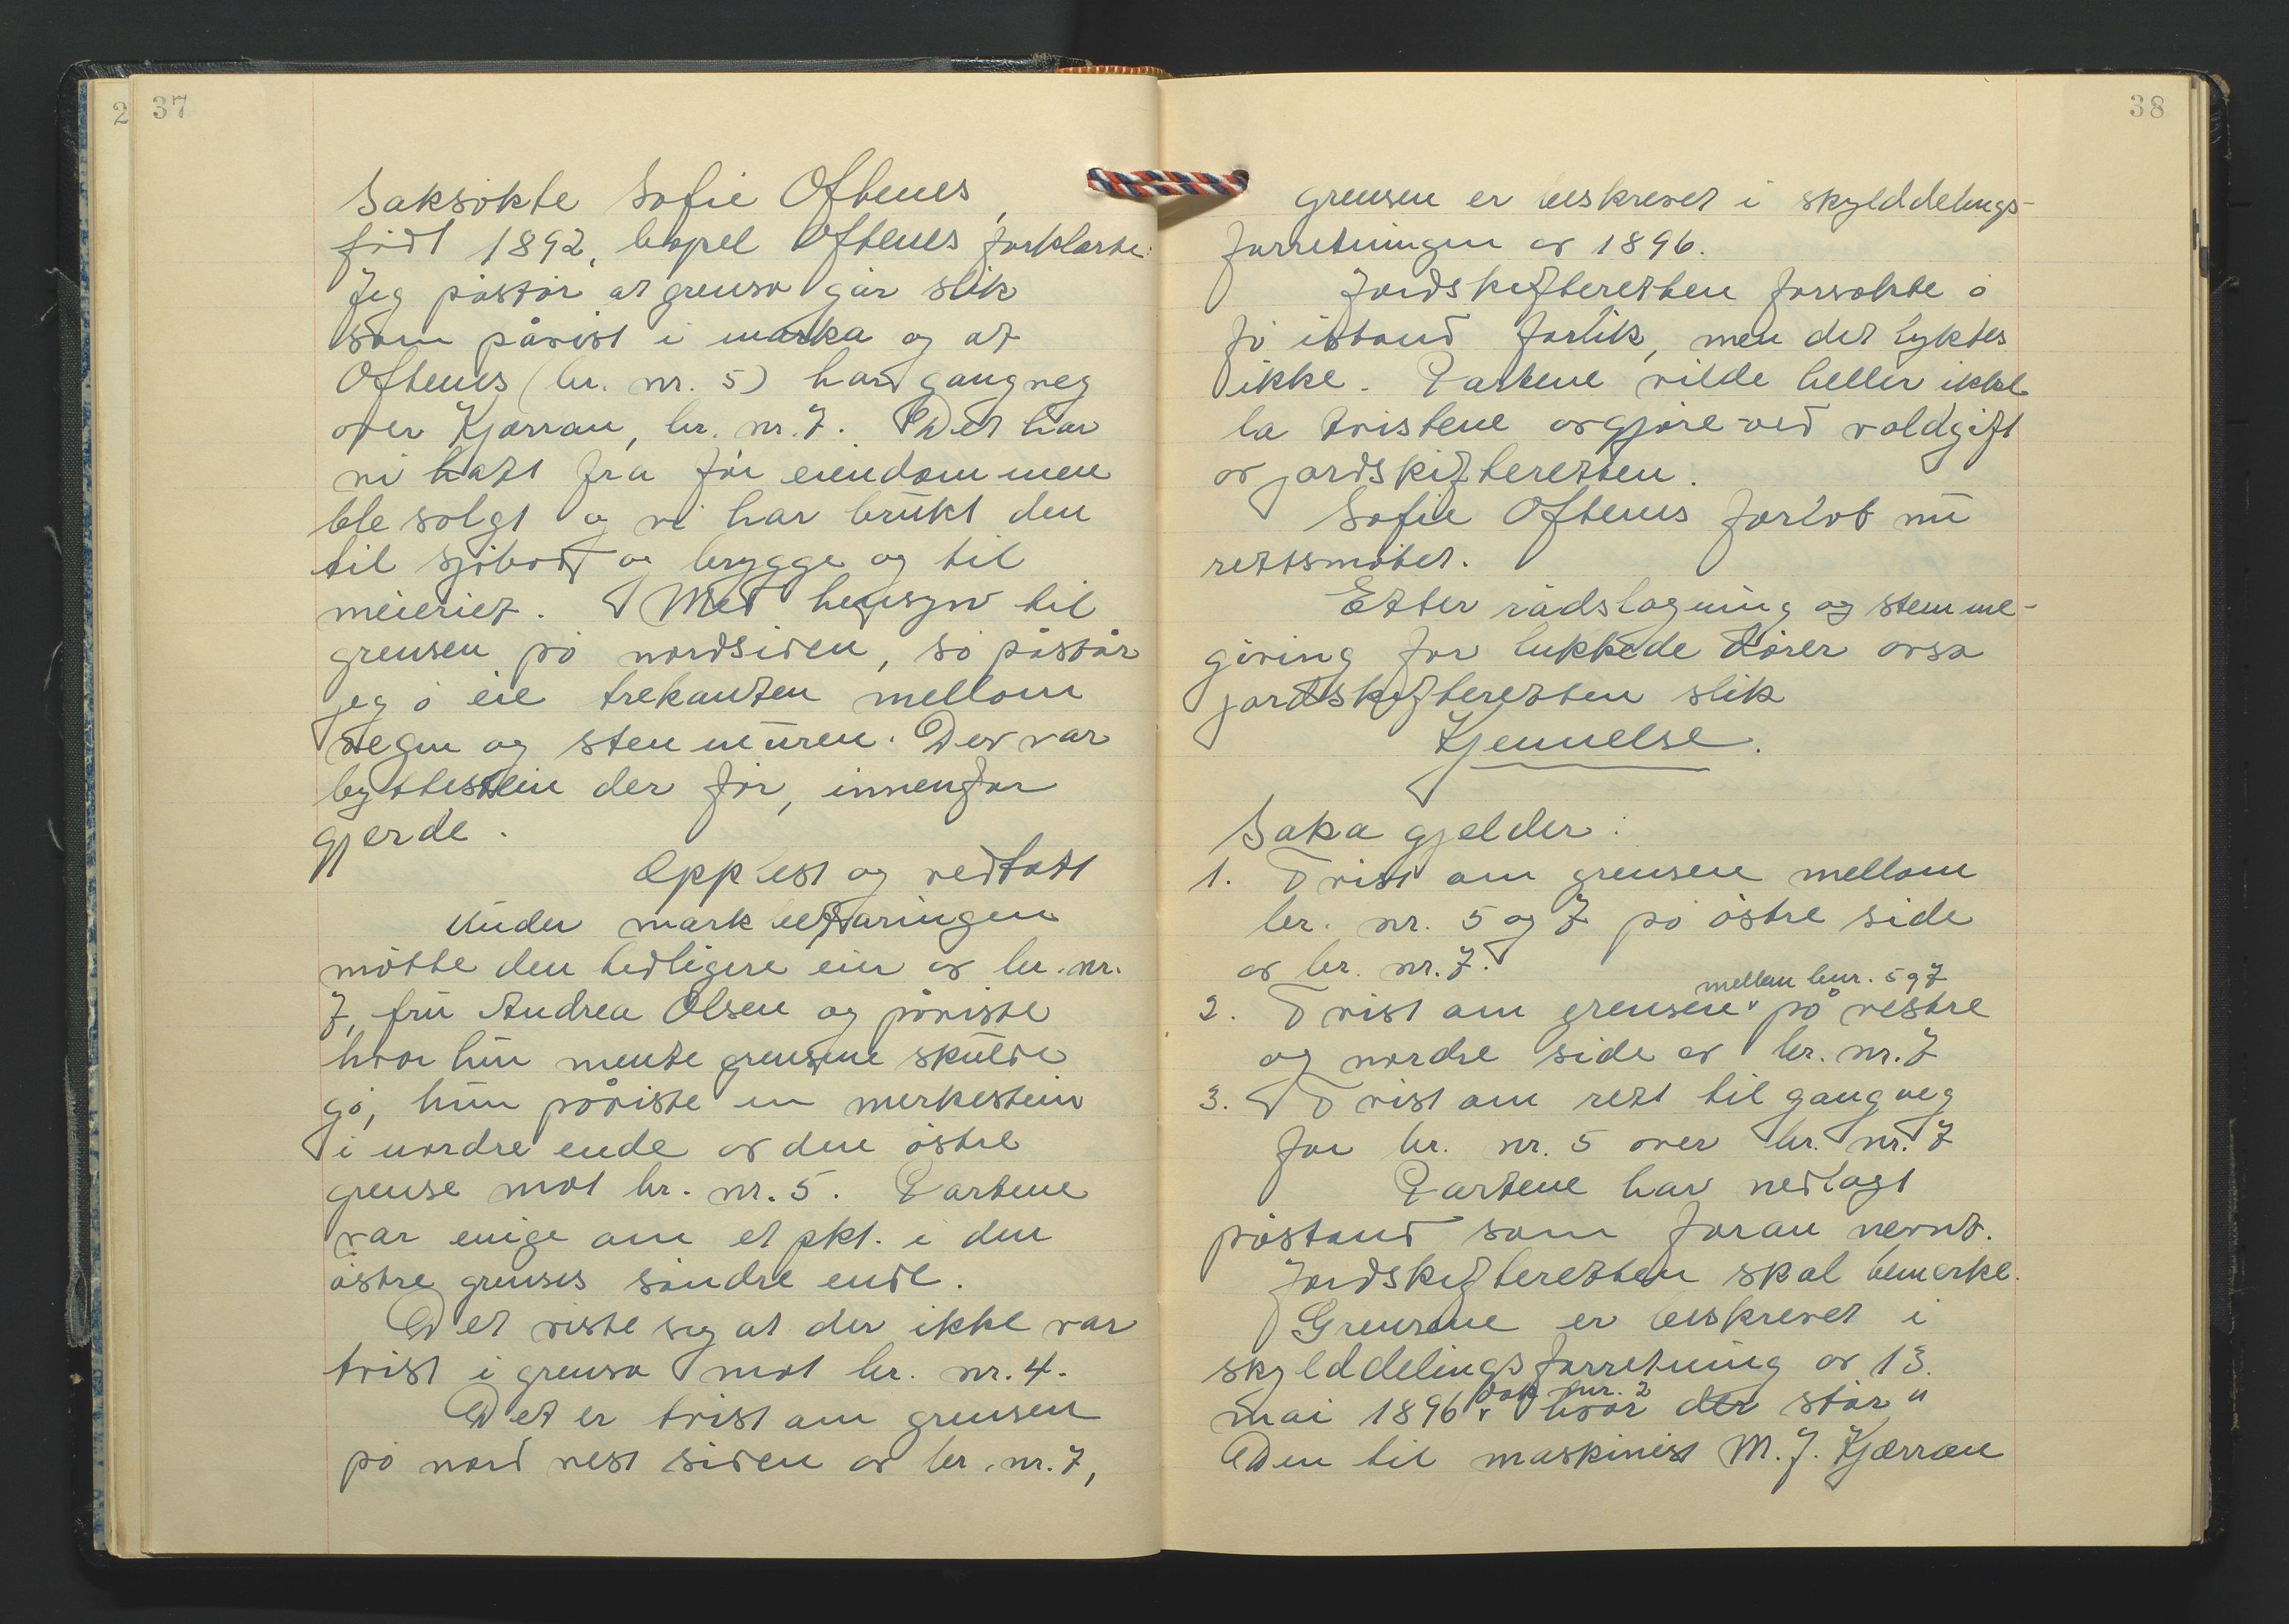 2 37
Saksøkte Sofie Oftenes,
født 1892, bopel Oftenes forklarte:
Jeg påstår at grensa går slik
som påvist i marka og at
Oftenes (br. nr. 5) har gangveg
over Kjærran, br. nr. 7. Det har
vi hatt fra før eiendommen
ble solgt og vi har brukt den
til sjøbod og brygge og til
meieriet. Med hensyn til
grensen på nordsiden, så påstår
jeg å eie trekanten mellom
vegen og stenmuren. Der var
byttestein der før, innenfor
gjerde.
Opplest og vedtatt
Under markbefaringen
møtte den tidligere eier av br. nr.
7, fru Andrea Olsen og påviste
hvor hun mente grensene skulde
gå, hun påviste en merkestein
i nordre ende av den østre
grense mot br. nr. 5. Partene
var enige om et pkt. i den
østre grenses søndre ende.
Det viste sig at der ikke var
tvist i grensa mot br. nr. 4.
Det er tvist om grensen
på nord vest siden av br. nr. 7,
38
grensen er beskrevet i skylddelings-
forretningen av 1896.
Jordskifteretten forsøkte å
få istand forlik, men det lyktes
ikke. Partene vilde heller ikke
la tvistene avgjøre ved voldgift
av jordskifteretten.
Sofie Oftenes forlot nu
rettsmøtet.
Etter rådslagning og stemme-
giving for lukkede dører avsa
jordskifteretten slik
Kjennelse.
Saka gjelder:
1. Tvist om grensene mellom
br. nr. 5 og 7 på østre side
av br. nr. 7.
mellem bnr. 5 og 7
2. Tvist om grensene på vestre
og nordre side av br. nr. 7
3. Tvist om rett til gangveg
for br. nr. 5 over br. nr. 7
Partene har nedlagt
påstand som foran nevnt.
Jordskifteretten skal bemerke.
Grensene er beskrevet i
skylddelingsforretning av 13.
dok. nr. 2
mai 1896 hvor der står "
Den til maskinist M. J. Kjærran